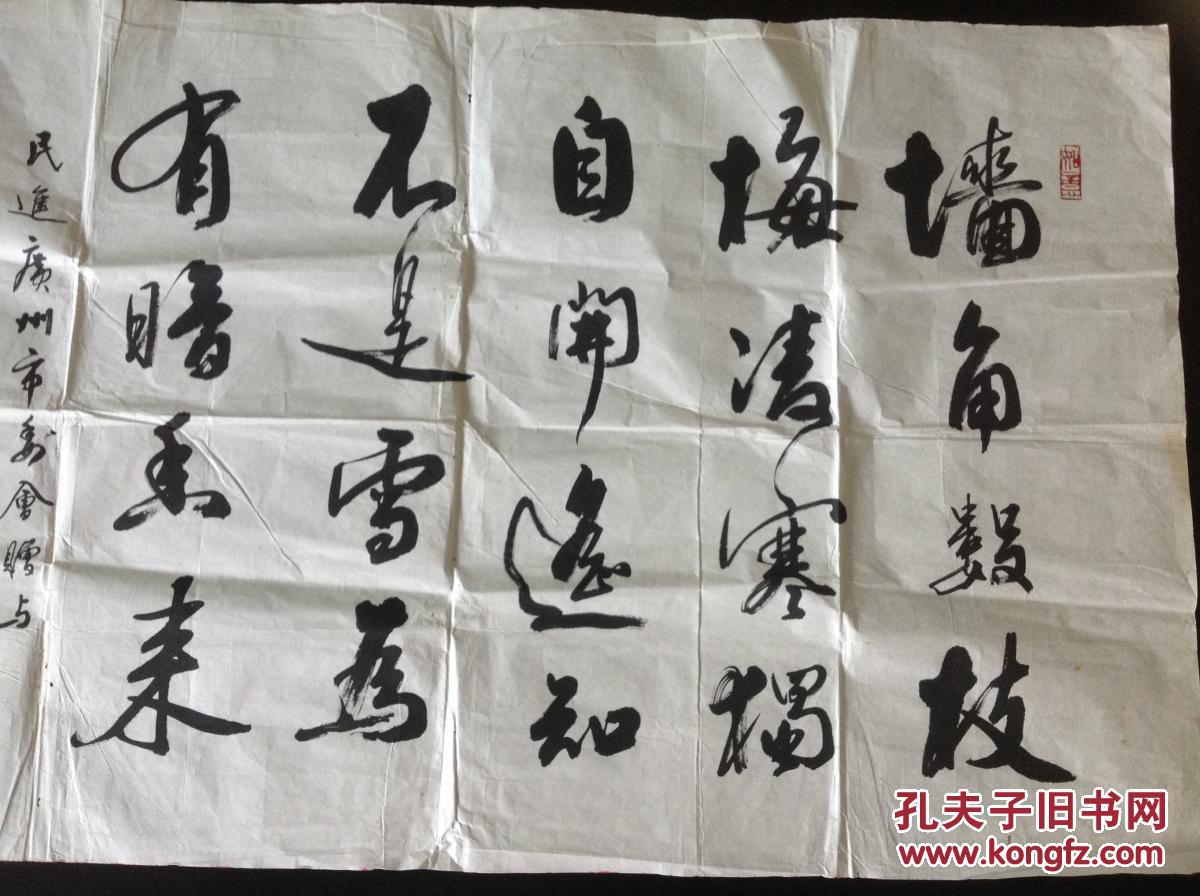 墻角數枝
梅凌寒獨
自開遙知
不是雪為
有暗香來
民進廣州市委會贈与
孔夫子旧书网
www.kongfz.com